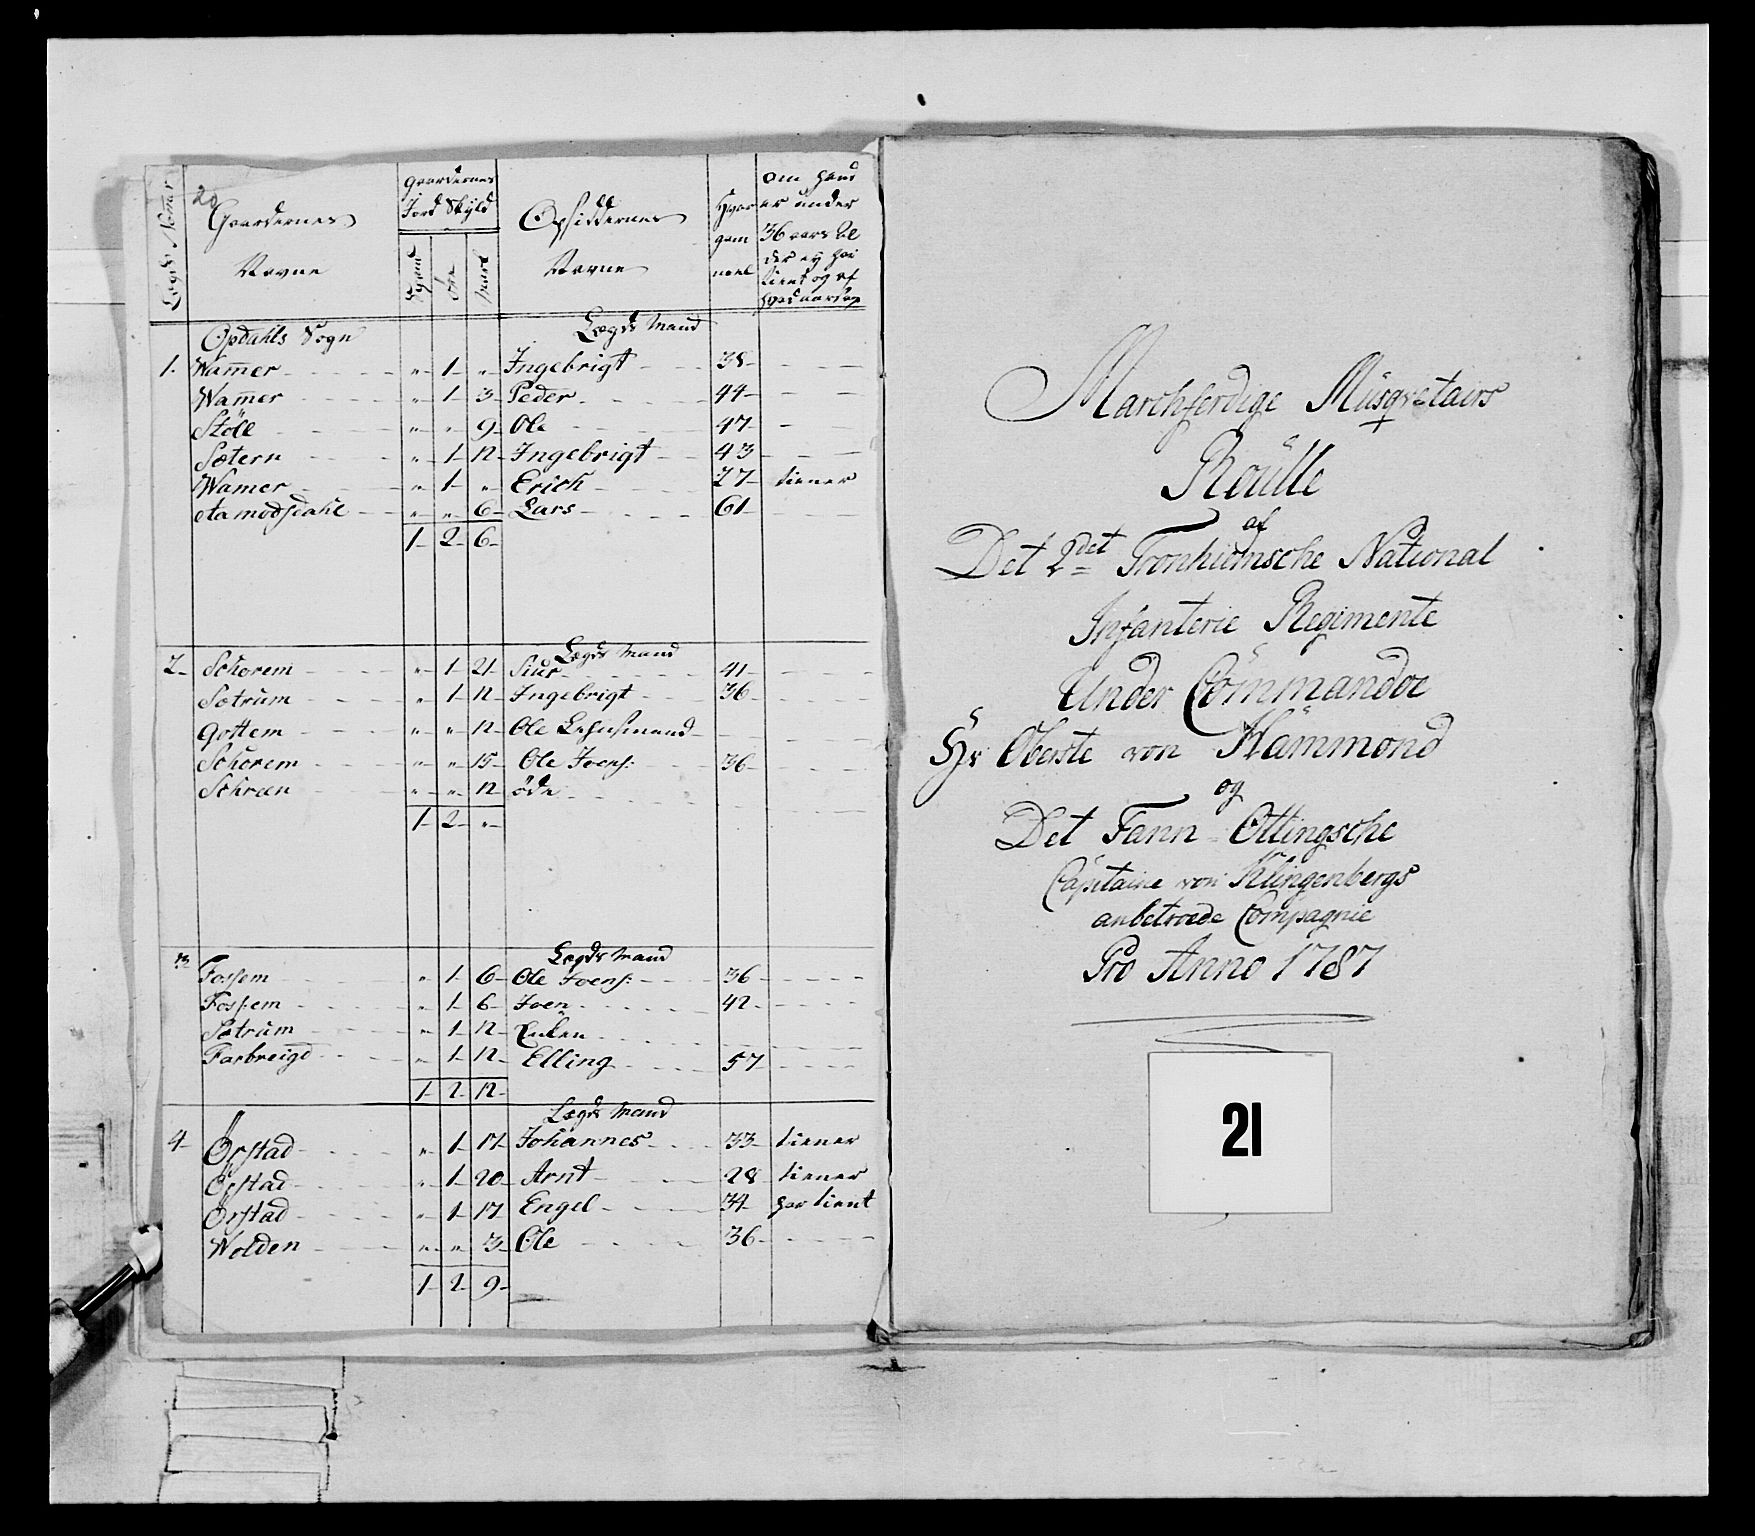 20
Lægds Nomer
Gaardernes
Navne
Gaardernes
Jord Skyld
Spand
öre
Marl
Opsiddernes
Navne
Hvor
gam
mel
Om hand
er under
36 aars Al
der ey har
tient og af
Opdahls Sogn Lægds Mand
1. Wam̄er - " - 1 - " - Ingebrigt - 38 -
Wam̄er - " - 1 - 3 - Peder - 44 -
Stöll - " - " - 9 - Ole - 47 -
Sætern - " - 1 - 12 - Ingebrigt - 43 -
Wamer - " - 1 - " - Erich - 27 - tiener
Aamodsdahl - " - " - 6 - Lars - 61 -
1 - 2 - 6 -
Lægds Mand
2 - Schorem - " - 1 - 21 - Siur - 41 -
Sætrum - " - 1 - 12 - Ingebrigt - 36 -
Gottem - " - " - 12 - Ole Lehnsmand -
Schorem - " - " - 15 - Ole Joens: - 36 -
Schræn - " - " - 12 - öde -
1 - 2 - " -
Lægds Mand
3 Fossem - " - 1 - 6 - Ole Joens: - 36 -
Fossem - " - 1 - 6 - Joen - 42 -
Sætrum - " - 1 - 12 - Enken -
Farbreigd - " - 1 - 12 - Elling - 57 -
1 - 2 - 12 -
Lægds Mand
4 - Örstad - " - 1 - 17 - Johannes - 33 - tiener
Örstad - " - 1 - 20 - Arnt - 28 tiener
Örstad - " - 1 - 17 - Engel - 34 - har tient
Wolden - " - " - 3 - Ole - 36 -
1 - 2 - 9 -
Marchferdige Müsqvetairs
Roülle
af
Det 2det Tronhiemsche National
Infanterie Regimente
Under Commandoe
Hr Oberste von Hammond
og
Det Fann-Ottingsche
Capitaine von Klingenbergs
anbetroede Compagnie
Pro Anno 1787
21